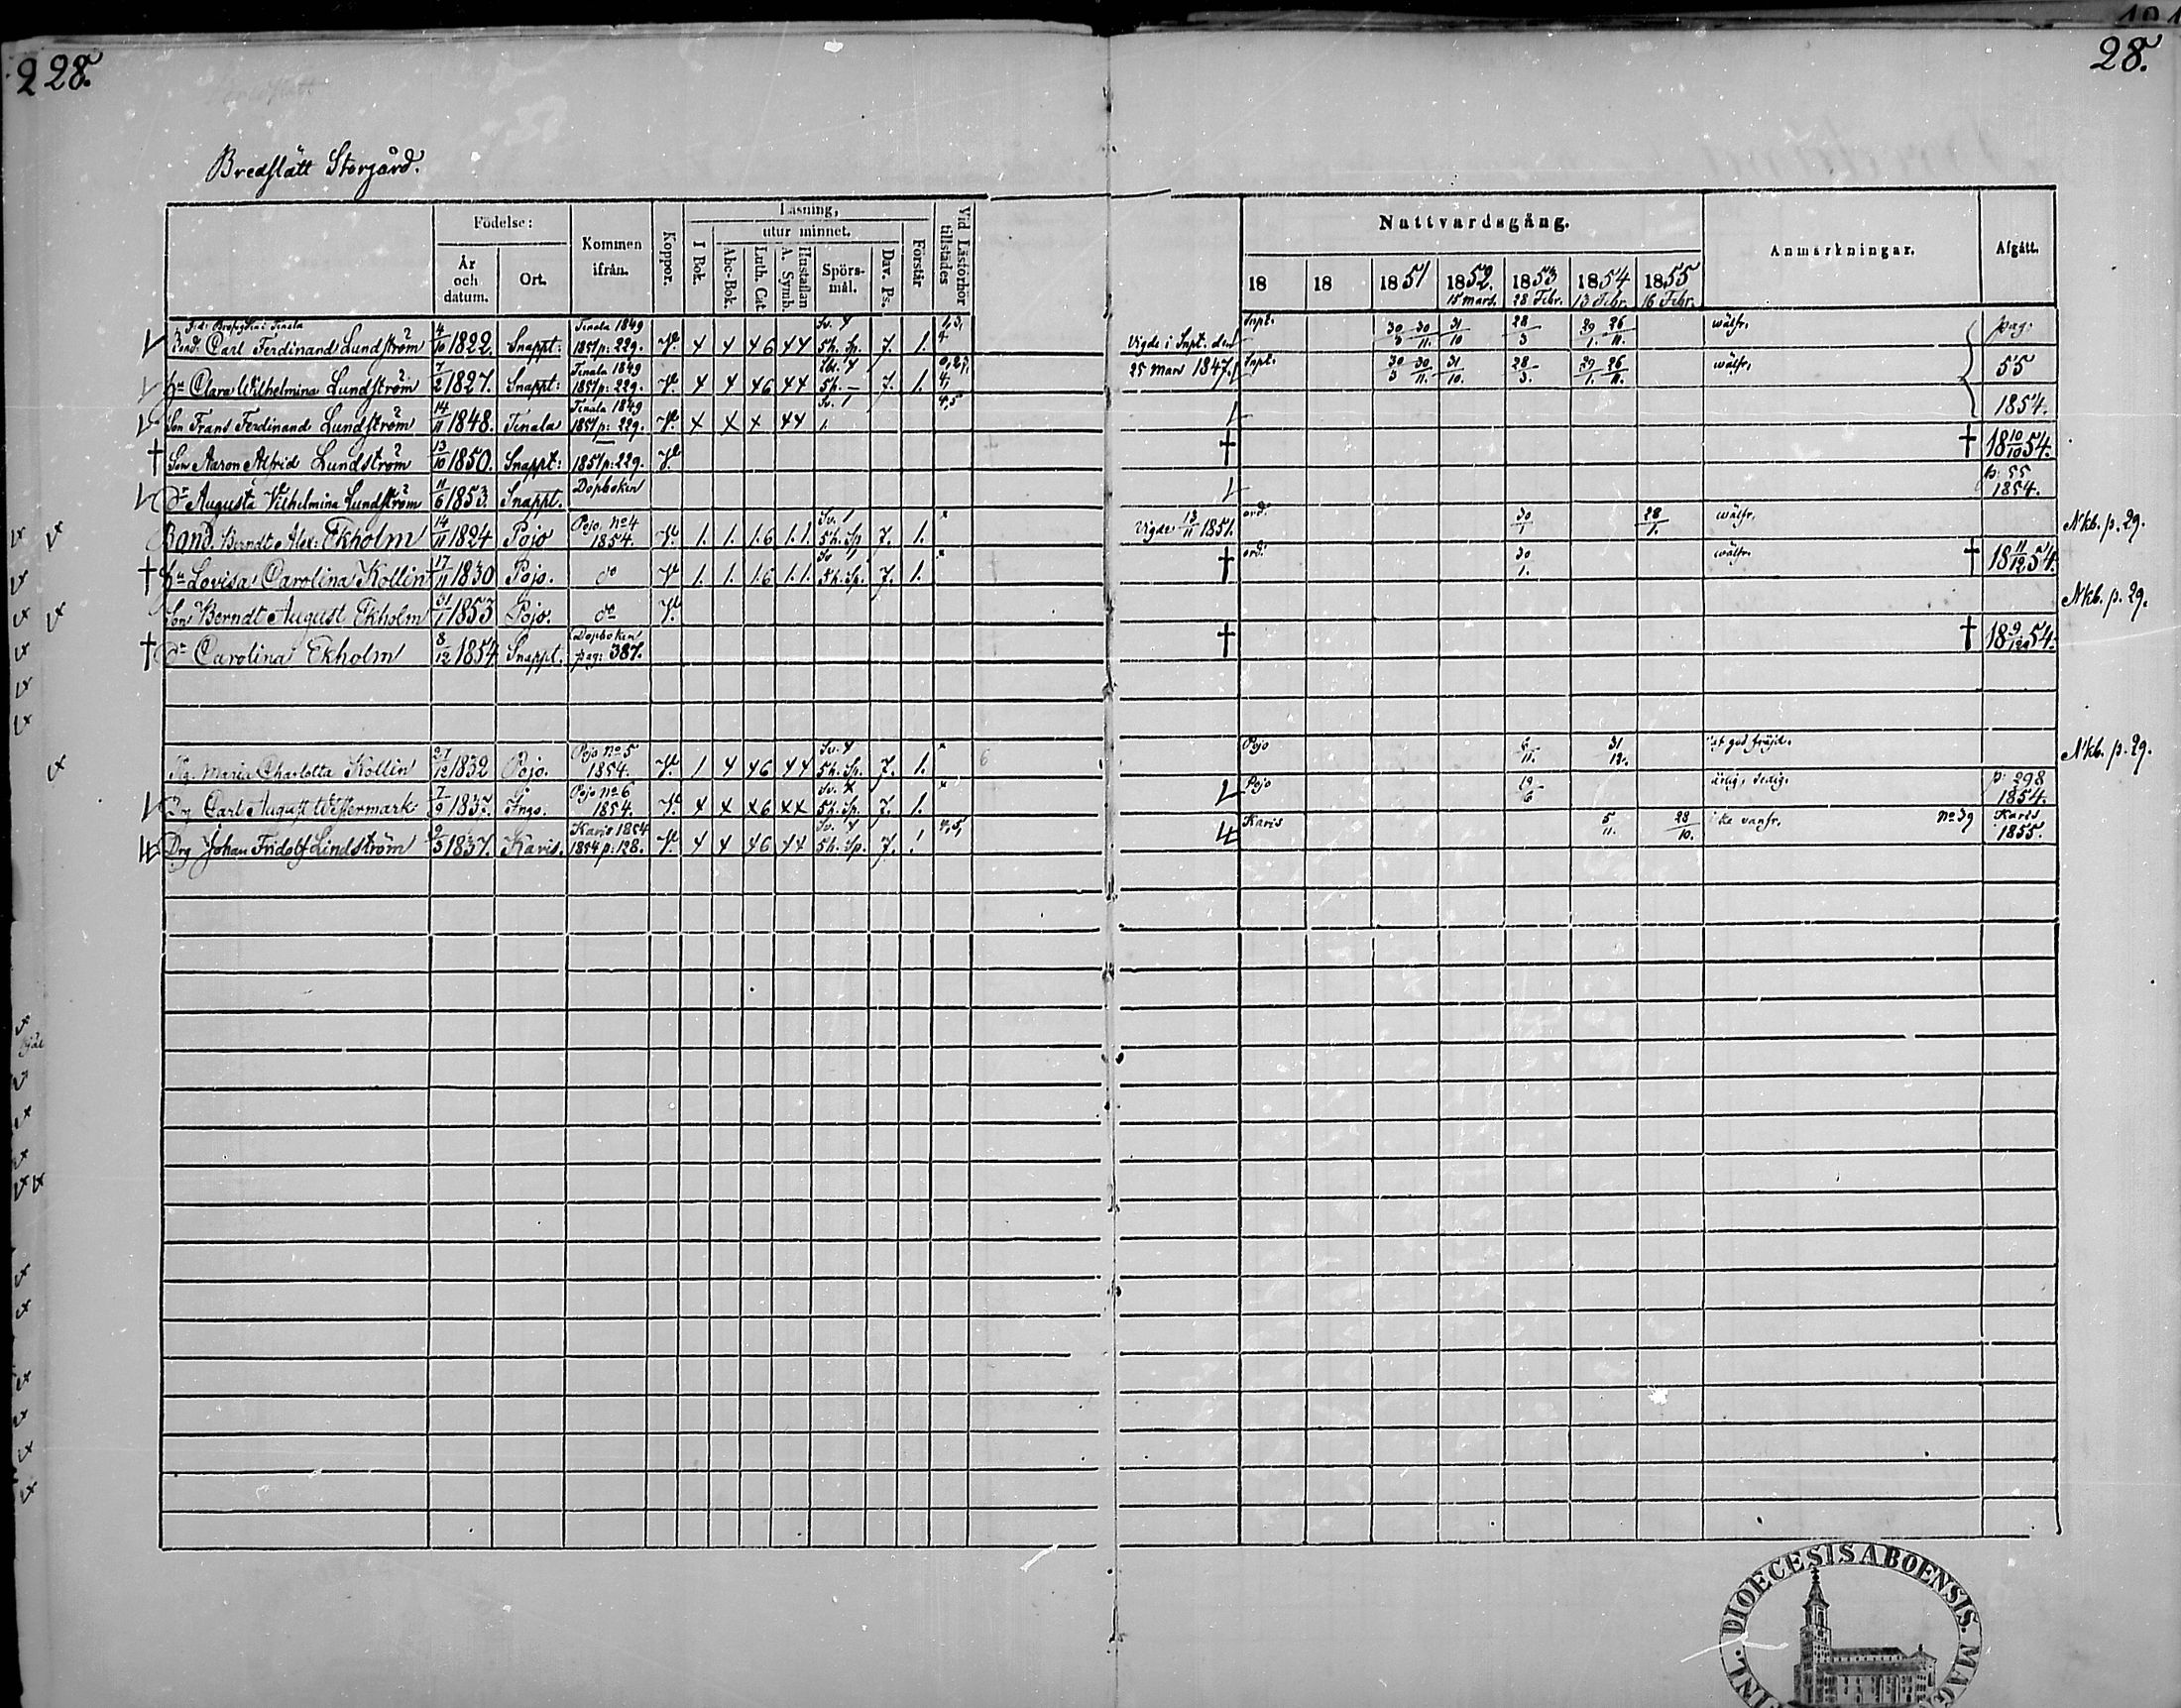 228.
28.
Bredslätt Storgård.
Födelse:
År och datum.
Ort.
Kommen ifrån.
Koppor.
Läsning,
I Bok.
utur minnet.
Abc-Bok.
Luth. Cat.
Hustaflan A. Symb.
Spörs-mål.
Dav. Ps.
Förstår
Vid Läsförhör tillstädes
Nattvardsgång.
18 18 1851 1852. 1853 1854 1855
15 mars. 28 Febr. 13 Febr. 16 Febr.
Anmärkningar.
Afgått.
Tenala 1849
Bond. Carl Ferdinand Lundström 4/10 1822. Snappt. 1851 p: 229. Sv. 5h. Sp. 7. 1. Vigde i Snpt. den Snpt. 30/3 30/11. 31/10 28/3 29/1. 26/11. wälfr. pag:
Tenala 1849
hu Clara Wilhelmina Lundström 7/2 1827. Snappt: 1851 p: 229. 5h. — 7. 1. 25 Mars 1847. Snpt. 30/3 30/11. 31/10. 28/3. 29/1. 26/11. wälfr. 55
Tenala 1849
Son Frans Ferdinand Lundström 14/11 1848. Tenala 1851 p: 229. Sv. 1 4,5 1854.
† Son Aaron Alfrid Lundström 13/10 1850. Snappt: 1851 p: 229. † † 18 10/10 54.
dr Augusta Vilhelmina Lundström 11/6 1853. Snappt. Dopboken p: 55 1854.
Bond. Berndt Alex: Ekholm 14/11 1824 Pojo Pojo, No 4 1854. 1. 1. 1.6 1.1. Sv. 1 5h. Sp 7. 1. x Vigde 13/11 1851. ord. 30/1 28/1. wälfr. Nkb. p. 29.
† hu Lovisa Carolina Kollin 17/11 1830 Pojo. do 1. 1. 1.6 1.1. 5h. Sp. 7. 1. x † ord. 30/1. wälfr. † 18 11/12 54.
Son Berndt August Ekholm 31/1 1853 Pojo. do Nkb. p. 29.
† dr Carolina Ekholm 8/12 1854 Snappt. Dopboken pag: 387. † † 18 9/12 54.
Pig. Maria Charlotta Kollin 27/12 1832 Pojo. Pojo No 5 1854. 5h. Sp. 7. 1. x Pojo 31/12. god fräjd. Nkb. p. 29.
Drg Carl August Westermark 7/9 1837. Ingo. Pojo No 6 1854. 5h. Sp. 7. 1. x Pojo 19/6 ärlig, p: 298 1854.
Drg Johan Fridolf Lindström 9/3 1837. Karis. Karis 1854 1854 p: 128. 5h. Sp. 7. Karis 5/11. 28/10. No 39 Karis 1855.
FINL. DIOECESIS ABOENSIS. MAG